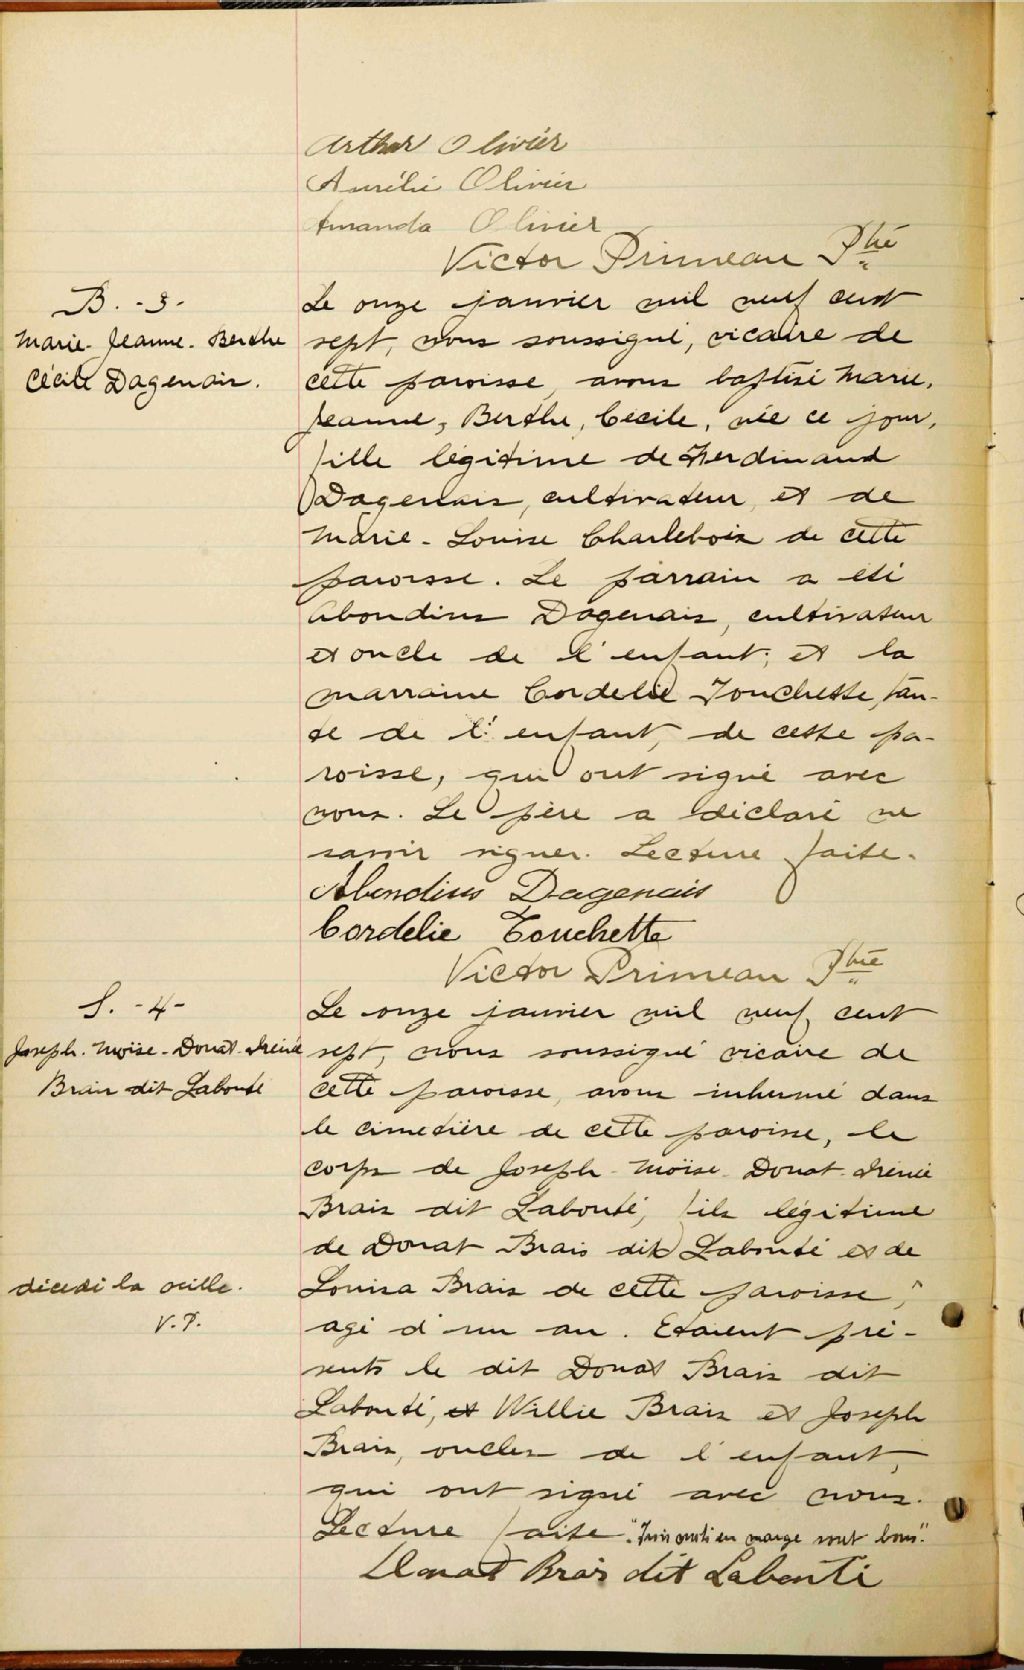 Arthur Olivier
Aurélie Olivier
Amanda Olivier
Victor Primeau Ptre
B. - 3 -
Marie - Jeanne - Berthe
Cécile Dagenais.
Le onze janvier mil neuf cent
sept, nous soussigné, vicaire de
cette paroisse, avons baptisé Marie,
Jeanne, Berthe, Cécile, née ce jour,
fille légitime de Ferdinand
Dagenais, cultivateur, et de
Marie - Louise Charlebois de cette
paroisse. Le parrain a été
Abondius Dagenais, cultivateur
et oncle de l'enfant; et la
marraine Cordelie Touchette, tan-
te de l'enfant, de cette pa-
roisse, qui ont signé avec
nous. Le père a déclaré ne
savoir signer. Lecture faite.
Abondius Dagenais
Cordelie Touchette
Victor Primeau Ptre
S. - 4 -
Joseph - Moïse - Donat - Irénée
Brais dit Labonté
Le onze janvier mil neuf cent
sept, nous soussigné vicaire de
cette paroisse, avons inhumé dans
le cimetière de cette paroisse, le
corps de Joseph - Moïse - Donat - Irénée
Brais dit Labonté, fils légitime
de Donat Brais dit Labonté et de
Louisa Brais de cette paroisse,
décédé la veille.
V. P.
agé d'un an. Etaient pré-
sents le dit Donat Brais dit
Labonté, et Willie Brais et Joseph
Brais, oncles de l'enfant,
qui ont signé avec nous.
Lecture faite. "Trois mots en marge sont bons."
Donat Brais dit Labonté